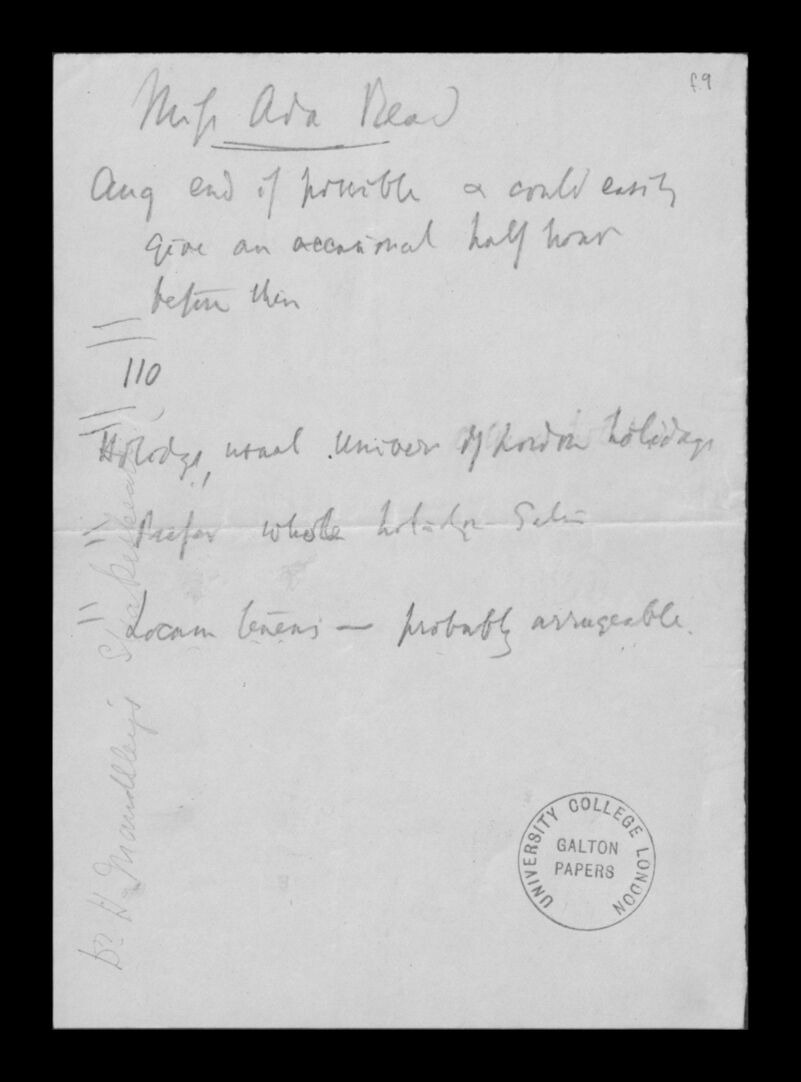 f.9
Miss Ada Read
Aug end if possible & could easily
give an occasional half hour
before then
110
Holidys, usual Univer of London holidays
Prefer whole holidys Satu
Locum tenens — probably arrageable.
Dr H Maudsley's Shakespeare
UNIVERSITY COLLEGE LONDON
GALTON
PAPERS